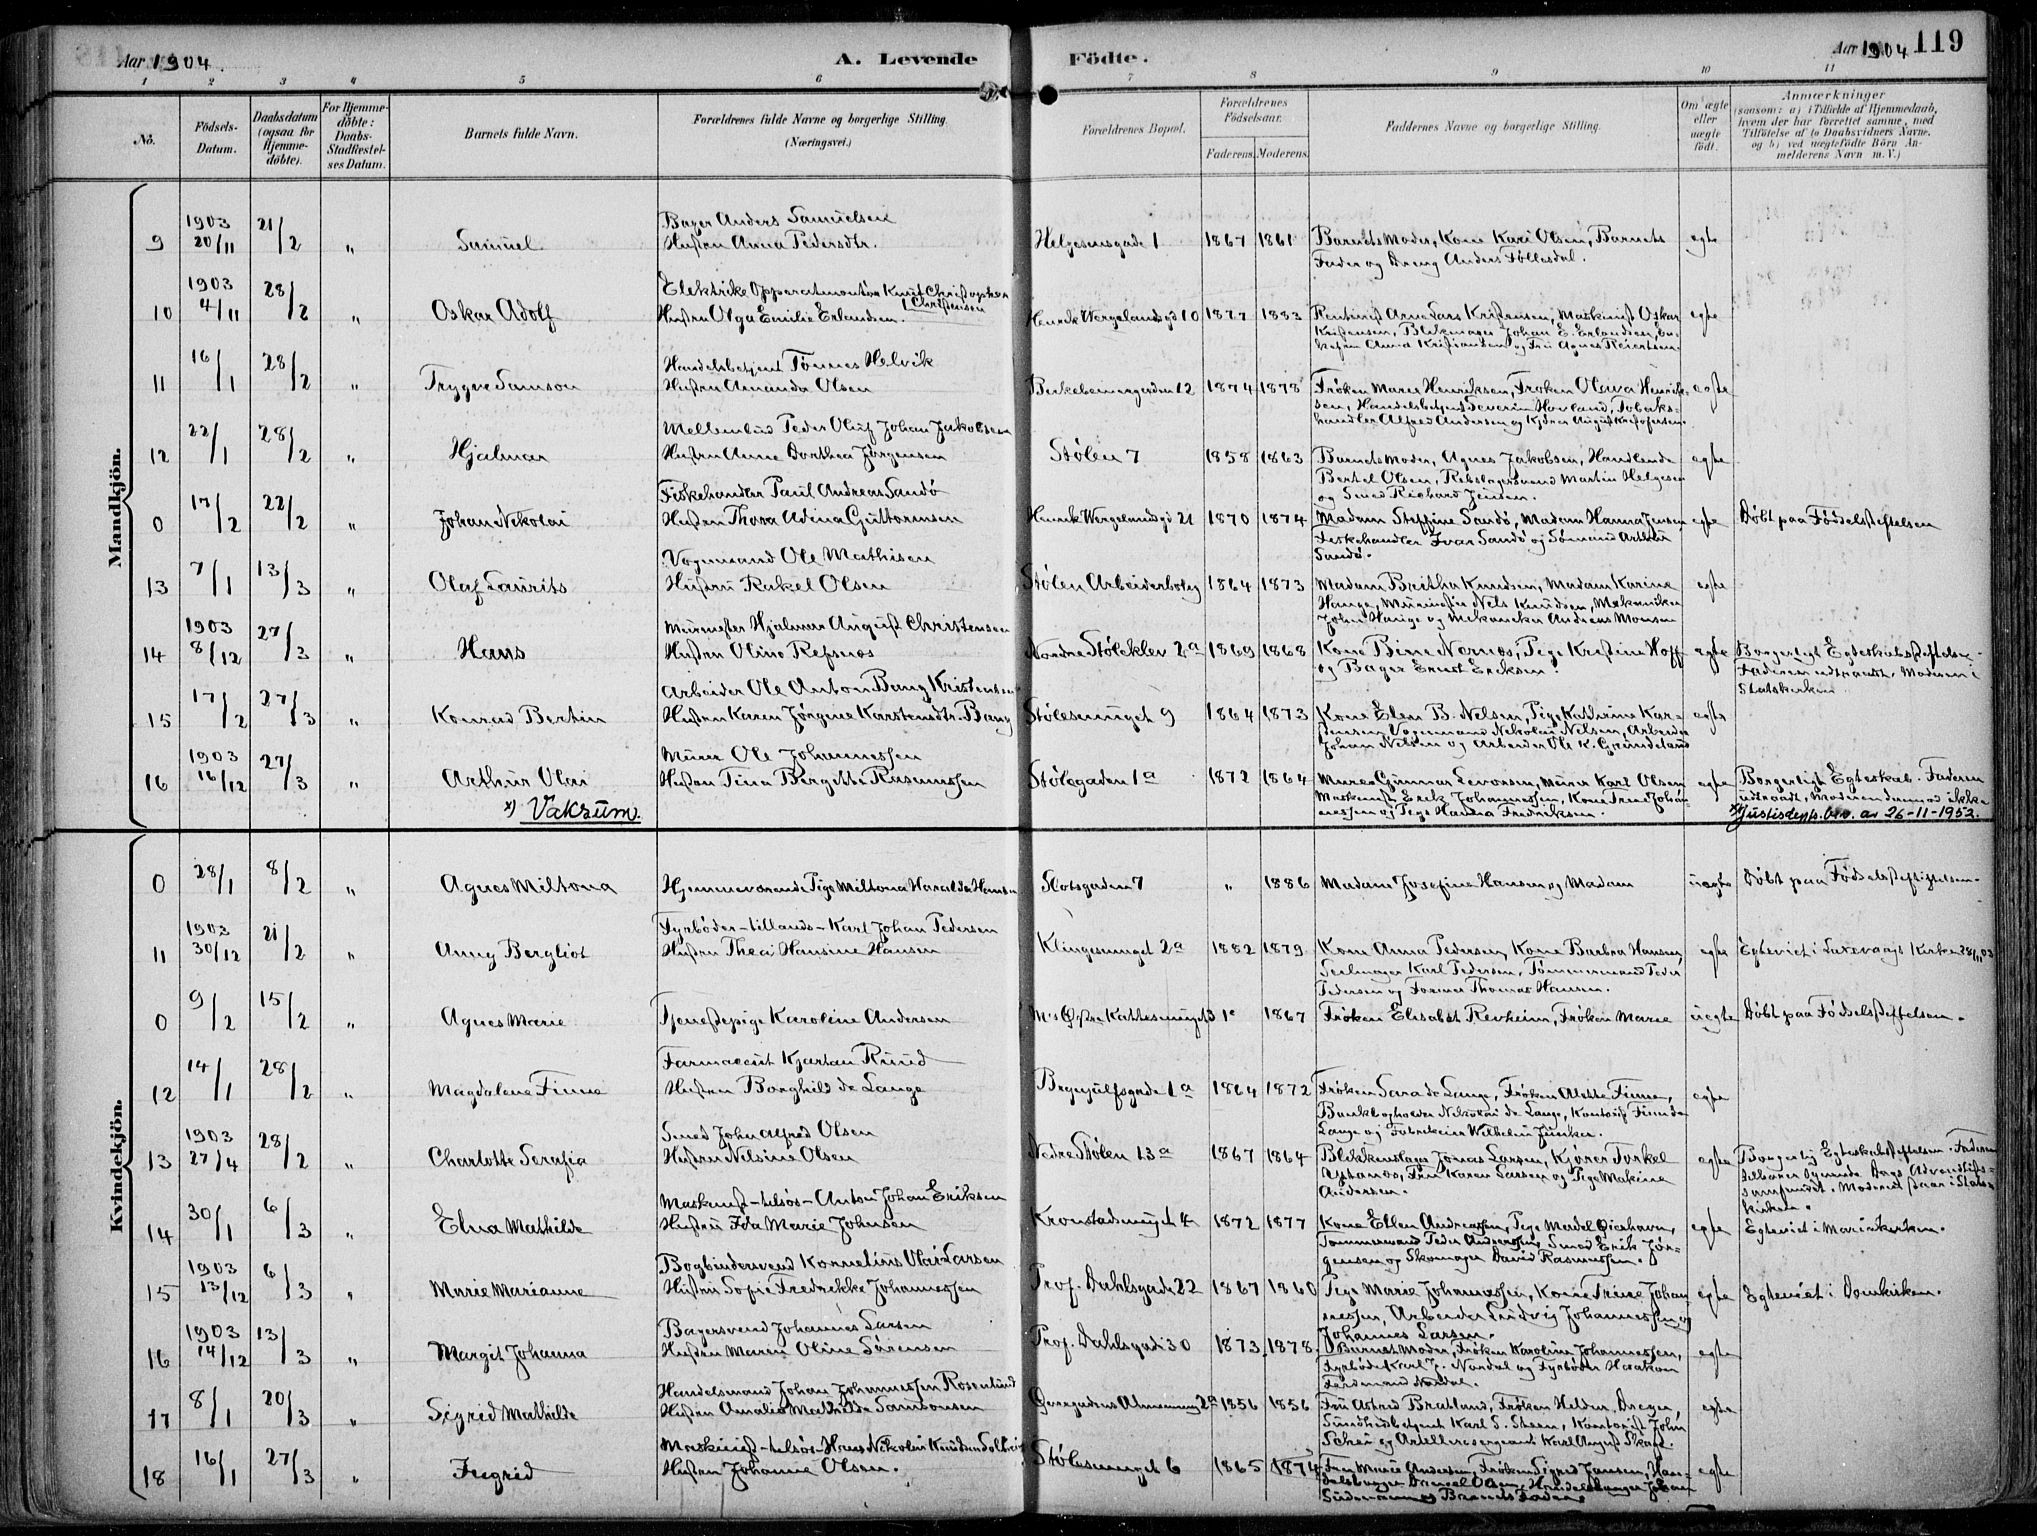 Aar 1904.
A. Levende
Födte.
Aar 1904
119
1 2 3 4 5 6 7 8 9 10 11
No.
Födsels-Datum.
Daabsdatum (ogsaa for Hjemme-döbte).
For Hjemme-döbte: Daabs-Stadfæstel-ses Datum.
Barnets fulde Navn.
Forældrenes fulde Navne og borgerlige Stilling.
(Næringsvei.)
Forældrenes Bopæl.
Forældrenes Födselsaar.
Faderens. Moderens.
Faddernes Navne og borgerlige Stilling.
Om ægte eller uægte födt.
Anmærkninger
(saasom: a) i Tilfælde af Hjemmedaab,
hvem der har forrettet samme, med
Tilföielse af to Daabsvidners Navne,
og b) ved uægtefödte Börn An-
melderens Navn m. V.)
Mandkjön.
9 1903 20/11 21/2 " Samuel
Bager Anders Samuelsen
Hustru Anna Pedersdtr.
Helgesensgade 1 1867 1861
Barnets Moder, Kone Kari Olsen, Barnets
Fader og Dreng Anders Føllesdal.
egte
10 1903 4/11 28/2 " Oskar Adolf
Elektrike Apparatmontør Knut Christophersen
Christensen
Hustru Olga Emilie Erlandsen.
Henrik Wergelandsgd 10 1877 1883
Rentenist Arne Lars Kristensen, Maskinist Oskar
Kristensen, Blikmager Johan E. Erlandsen,
Anna Kristiansen og Frk Agnes Reiertsen.
egte
11 16/1 28/2 " Trygve Samson
Handelsbetjent Tønnes Helvik
Hustru Amanda Olsen
Birkebeinergaden 12 1874 1878
Frøken Marie Henriksen, Frøken Olava Henrik-
sen, Handelsbetjent Severin Hovland, Tobaks-
handler Alfred Andersen og Kjører August Kristofersen.
egte
12 22/1 28/2 " Hjalmar
Mellembud Peder Oluf Johan Jakobsen
Hustru Anne Dorthea Jørgensen
Stølen 7 1858 1863
Barnets Moder, Agnes Jakobsen, Handlende
Bertel Olsen, Rebslagersvend Martin Helgesen
og Smed Richard Jensen.
egte
0 13/2 22/2 " Johan Nikolai
Fiskehandler Paul Andreas Sandø
Hustru Thora Adina Guttormsen
Henrik Wergelandsgd 21 1870 1874
Madam Steffine Sandø, Madam Hanna Jensen
Fiskehandler Ivar Sandø og Sømand Arthur
Sandø.
egte
Døbt paa Fødselsstiftelsen
13 7/1 13/3 " Olaf Laurits
Vognmand Ole Mathisen
Hustru Rakel Olsen
Stølen Arbeiderbolig 1864 1873
Madam Britha Knudsen, Madam Karine
Hauge, Murmester Nels Knudsen, Mekaniker
John Hauge og Mekaniker Andreas Monsen
egte
14 1903 8/12 27/3 " Hans
Murmester Hjalmar August Christensen
Hustru Olina Refsnes
Nordre Støleklev 2a 1869 1868
Kone Bine Nernes, Pige Kristine Hoff
og Bager Ernst Eriksen.
egte
Borgerligt Egteskabsstiftelse.
Faderen udtraadt, Moderen i
Statskirken
15 17/2 27/3 " Konrad Bertin
Arbeider Ole Anton Bang Kristensen
Hustru Karen Jørgine Karstensdtr. Bang
Stølesmuget 9 1864 1873
Kone Elen B. Nelsen, Pige Kathrine Kar-
stensen, Vognmand Nikolai Nelsen, Arbeider
Johan Nelsen og Arbeider Ole K. Grundeland
egte
16 1903 16/12 27/3 " Arthur Olai
x) Vaksum.
Murer Ole Johannessen
Hustru Tina Bergitte Rasmussen
Stølegaden 1a 1872 1864
Murer Gunnar Levorsen, Murer Karl Olsen
Maskinist Erik Johannessen, Kone Trine Johan-
nessen og Pige Hanna Fredriksen.
egte
Borgerligt Egteskab. Faderen
udtraadt, Moderen derimod ikke
x) Justisdepts. bev. av 26-11-1952.
Kvindekjön.
0 28/1 8/2 " Agnes Miltona
Hjemmeværende Pige Miltona Haralda Hansen
Slotsgaden 7 " 1886
Madam Josefine Hansen og Madam
uegte
Døbt paa Fødselsstiftelsen.
11 1903 30/12 21/2 " Anny Bergliot
Fyrbøder-tillands-Karl Johan Pedersen
Hustru Thea Hansine Hansen
Klingesmuget 2a 1882 1879
Kone Anna Pedersen, Kone Barbra Hansen,
Seilmager Karl Pedersen, Tømmermand Peder
Pedersen og Former Thomas Hansen.
egte
Egteviet i Laxevaags Kirke 28/11 03
0 9/2 15/2 " Agnes Marie
Tjenestepige Karoline Andersen
M's Øvre Kattesmuget 3 1c 1867
Frøken Elisabet Revheim, Frøken Marie
uegte
Døbt paa Fødselsstiftelsen.
12 14/1 28/2 " Magdalene Finne
Farmaceut Kjartan Ruud
Hustru Borghild de Lange
Brynjulfsgade 1a 1864 1872
Frøken Sara de Lange, Frøken Alette Finne,
Bankbogholder Nikolai de Lange, Kontorist Finn de
Lange og Fabrikeier Wilhelm Junker.
egte
13 1903 27/4 28/2 " Charlotte Serafia
Smed John Alfred Olsen
Hustru Nelsine Olsen
Nedre Stølen 13a 1867 1864
Blikkenslager Jonas Larsen, Kjører Torkel
Ystanes, Fru Karen Larsen og Pige Makine
Andersen.
egte
Borgerlig Egteskabsstiftelse. Faderen
tilhører Syvende Dags Adventists-
samfundet. Moderen staar i Stats-
kirken.
14 30/1 6/3 Elna Mathilde
Maskinist-tilsøs-Anton Johan Eriksen
Hustru Ida Marie Johnsen
Kronstadsmuget 4 1872 1877
Kone Ellen Andreassen, Pige Mardel Øiehavn,
Tømmermand Peder Andreassen, Smed Erik Jør-
gensen og Skomager David Rasmussen.
egte
Egteviet i Mariekirken.
15 1903 13/12 6/3 " Marie Marianne
Bogbindersvend Kornelius Olai Larsen
Hustru Sofie Fredrikke Johannessen
Prof. Dahlsgade 22 1867 1860
Pige Marie Johannessen, Kone Trine Johan-
nessen, Arbeider Ludvig Johannessen og
Johannes Larsen.
egte
Egteviet i Domkirken.
16 1903 14/12 13/3 " Margit Johanna
Bagersvend Johannes Larsen
Hustru Maren Oline Sørensen
Prof. Dahlsgade 30 1873 1878
Barnets Moder, Frøken Karoline Johannessen,
Fyrbøder Karl J. Nordal og Fyrbøder Haakon
Ferdinand Nordal.
egte
17 8/1 20/3 " Sigrid Mathilde
Handelsmand Johan Johannessen Rosenlund
Hustru Amalia Mathilde Samsonsen
Øvregadens Almenning 2a 1856 1856
Fru Astrid Bratland, Frøken Helder Dreyer,
Sundhedsbetjent Karl S. Steen, Kontorist John
Schei og Artillerisergeant Karl August Skaar.
egte
18 16/1 27/3 " Ingrid
Maskinist-tilsøs-Hans Nikolai Knudsen
Hustru Johanne Olsen.
Stølesmuget 6 1865 1874
Fru Marie Andersen, Frøken Sigrid Jansen, Han-
delsborger Olsen, Handelsborger Johan
og Barnets Fader.
egte